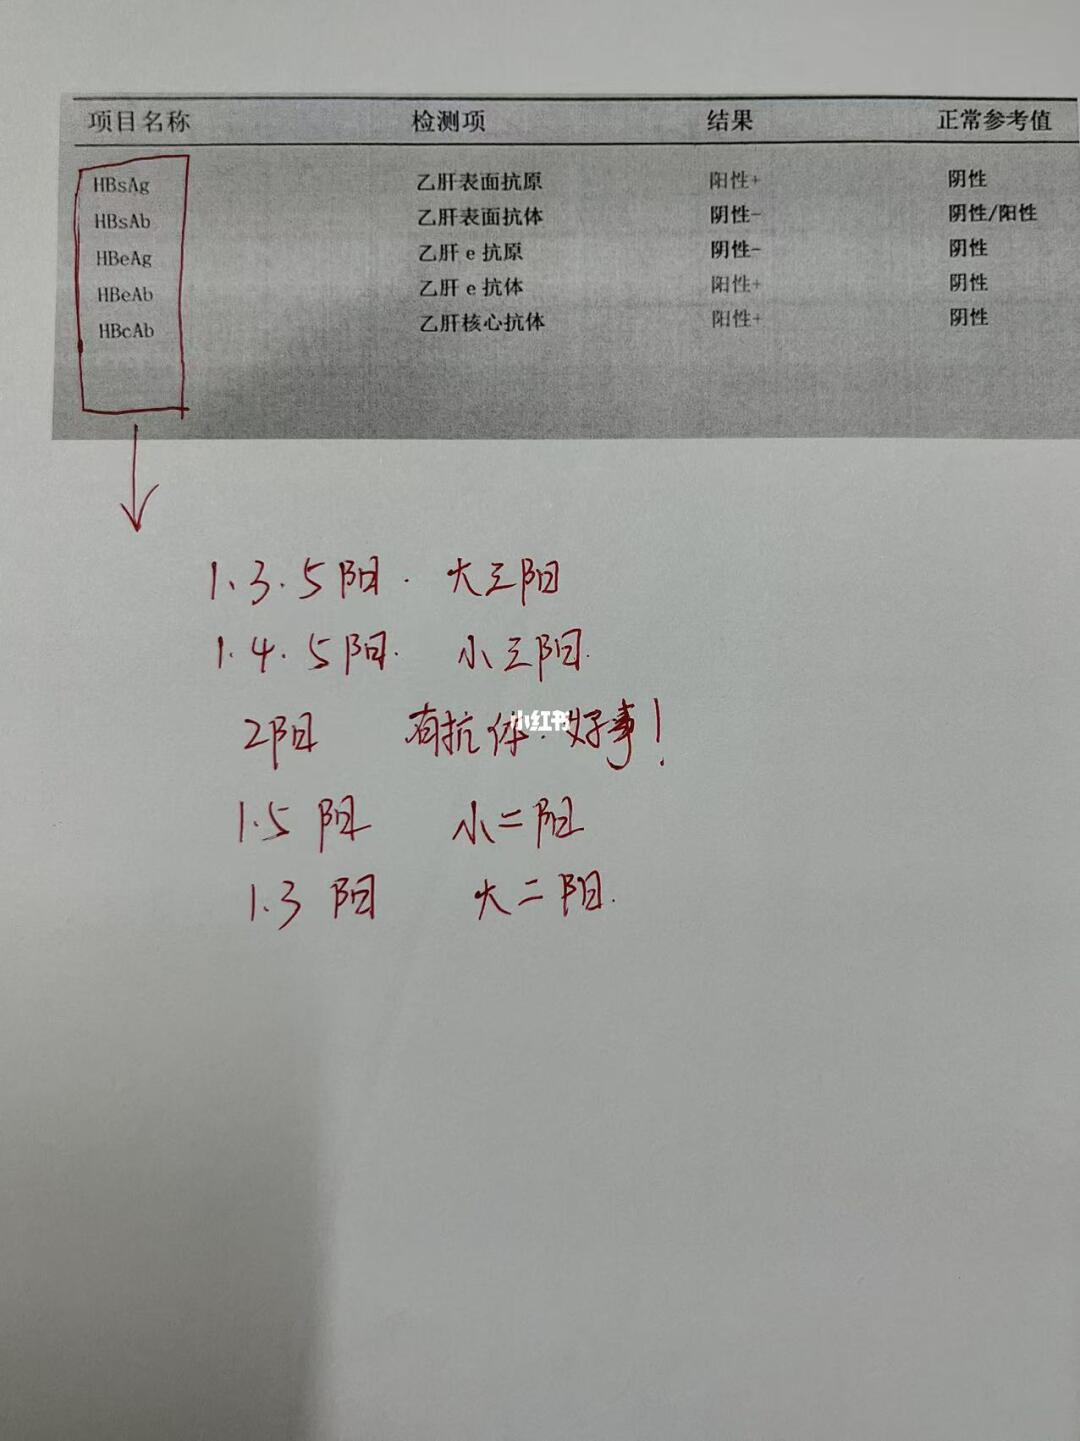 项目名称 检测项 结果 正常参考值
HBsAg 乙肝表面抗原 阳性+ 阴性
HBsAb 乙肝表面抗体 阴性- 阴性/阳性
HBeAg 乙肝e抗原 阴性- 阴性
HBeAb 乙肝e抗体 阳性+ 阴性
HBcAb 乙肝核心抗体 阳性+ 阴性
1.3.5阳. 大三阳
1.4.5阳. 小三阳.
2阳 有抗体.好事!
小红书
1.5阳 小二阳
1.3阳 大二阳.